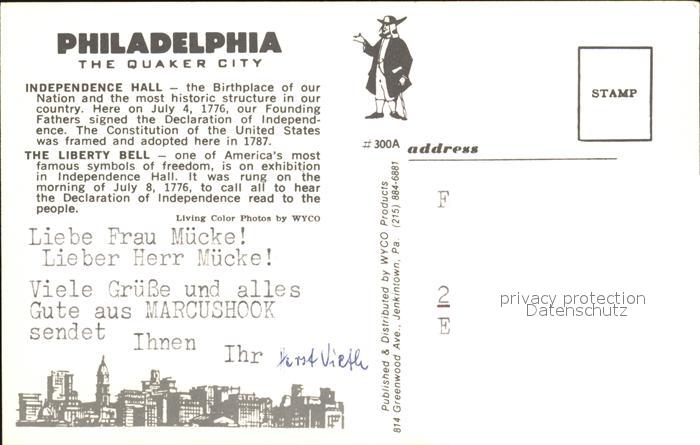 PHILADELPHIA
THE QUAKER CITY
INDEPENDENCE HALL — the Birthplace of our
Nation and the most historic structure in our
country. Here on July 4, 1776, our Founding
Fathers signed the Declaration of Independ-
ence. The Constitution of the United States
was framed and adopted here in 1787.
THE LIBERTY BELL — one of America's most
famous symbols of freedom, is on exhibition
in Independence Hall. It was rung on the
morning of July 8, 1776, to call all to hear
the Declaration of Independence read to the
people.
Living Color Photos by WYCO
Liebe Frau Mücke!
Lieber Herr Mücke!
Viele Grüße und alles
Gute aus MARCUSHOOK
sendet Ihnen
Ihr Vieth
#300A
Published & Distributed by WYCO Products
814 Greenwood Ave., Jenkintown, Pa. (215) 884-6881
STAMP
address
F
2
E
privacy protection
Datenschutz